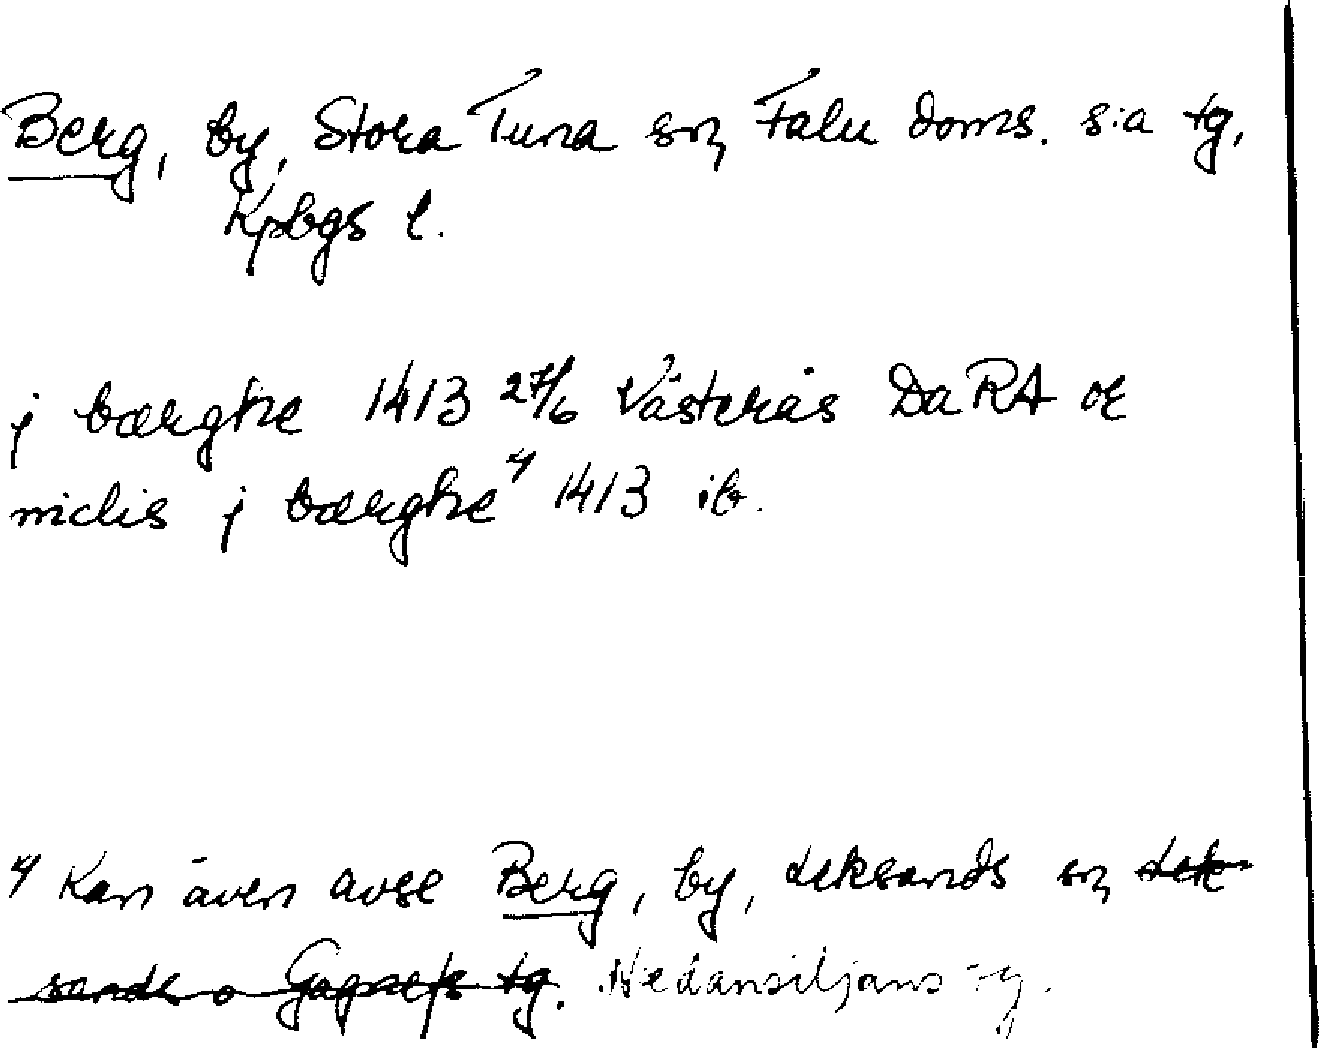 Berg, by, Stora Tuna sn, Falu doms. s:a tg,
Kpbgs l.
j bærghe 1413 27/6 Västerås Da RA or
niclis j bærghe 1) 1413 ib.
1) Kan även avse Berg, by, Leksands sn, Lek-
sands o Gagnefs tg. Nedansiljans tg.